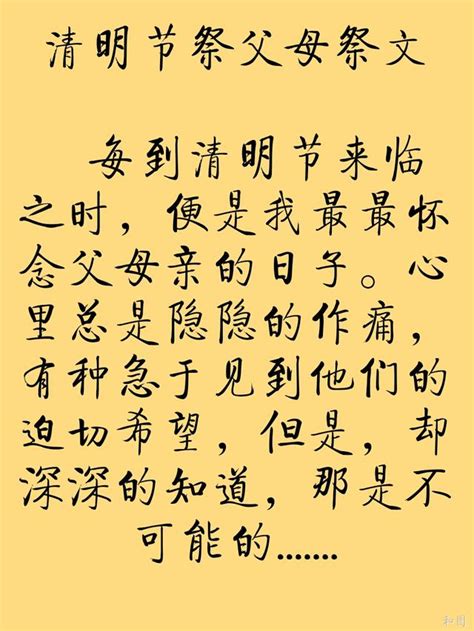 清明节祭父母祭文
每到清明节来临
之时，便是我最最怀
念父母亲的日子。心
里总是隐隐的作痛，
有种急于见到他们的
迫切希望，但是，却
深深的知道，那是不
可能的.......